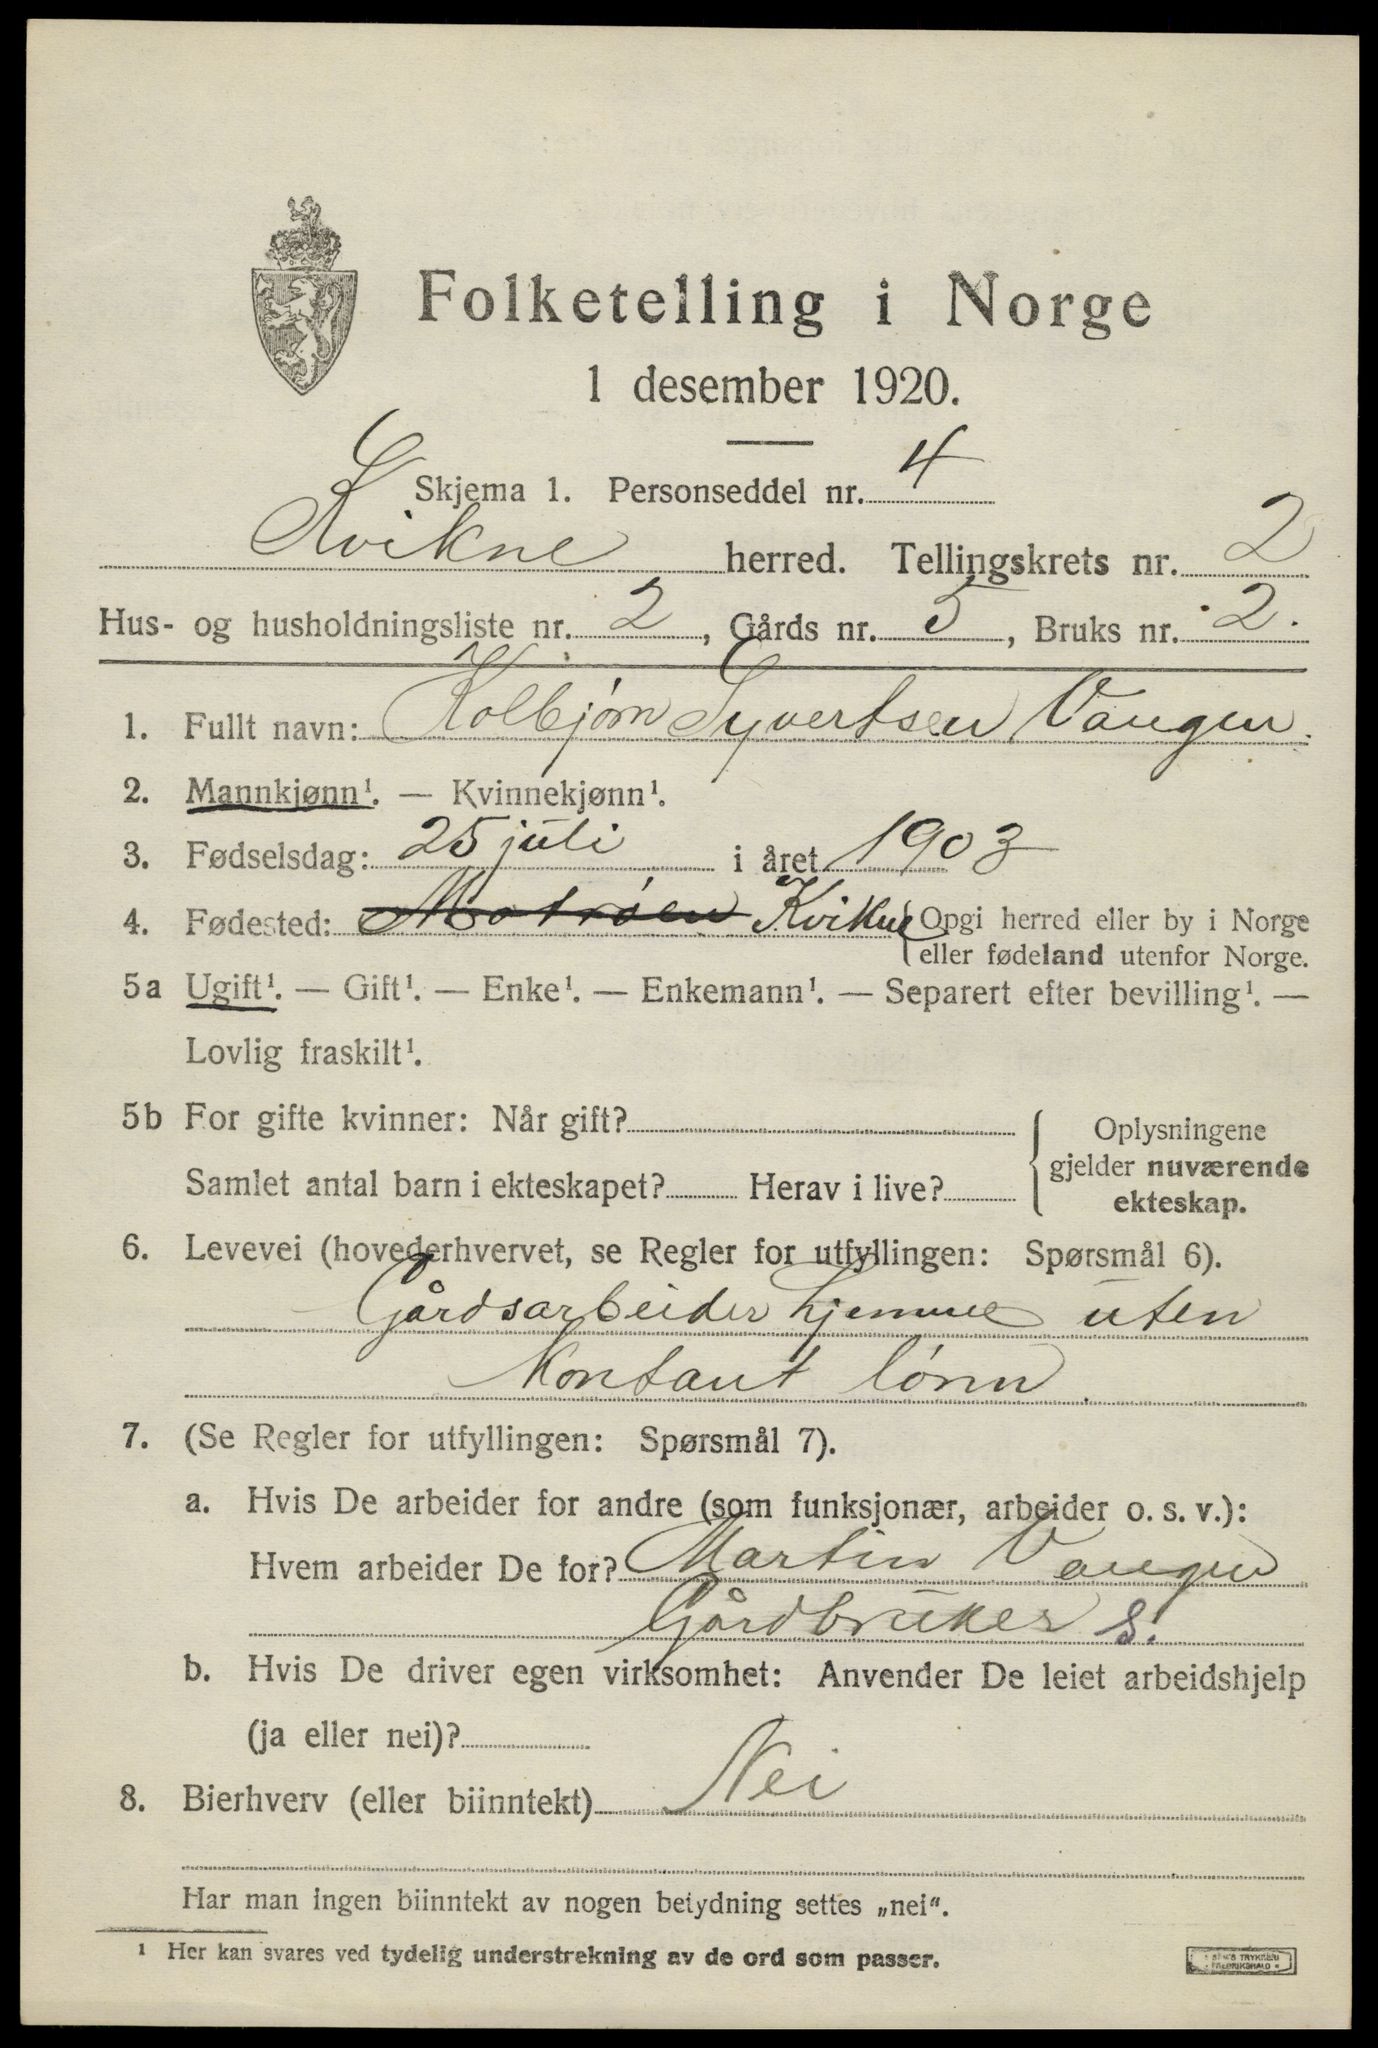 Folketelling i Norge
1 desember 1920.
Skjema 1. Personseddel nr. 4
Kvikne herred. Tellingskrets nr. 2
Hus- og husholdningsliste nr. 2, Gårds nr. 5, Bruks nr. 2.
1. Fullt navn: Kolbjørn Syvertsen Vangen.
2. Mannkjønn¹. — Kvinnekjønn¹.
3. Fødselsdag: 25 juli i året 1903
4. Fødested: Motrøen Kvikne { Opgi herred eller by i Norge
eller fødeland utenfor Norge.
5a Ugift¹. — Gift¹. — Enke¹. — Enkemann¹. — Separert efter bevilling¹. —
Lovlig fraskilt¹.
5b For gifte kvinner: Når gift?
Samlet antal barn i ekteskapet? Herav i live?
Oplysningene
gjelder nuværende
ekteskap.
6. Levevei (hovederhvervet, se Regler for utfyllingen: Spørsmål 6).
Gårdsarbeider hjemme uten
kontant lønn.
7. (Se Regler for utfyllingen: Spørsmål 7).
a. Hvis De arbeider for andre (som funksjonær, arbeider o. s. v.):
Hvem arbeider De for? Martin Vangen
Gårdbruker S.
b. Hvis De driver egen virksomhet: Anvender De leiet arbeidshjelp
(ja eller nei)?
8. Bierhverv (eller biinntekt) Nei
Har man ingen biinntekt av nogen betydning settes „nei“.
¹ Her kan svares ved tydelig understrekning av de ord som passer.
TRYKKERI
FREDRIKSHALD